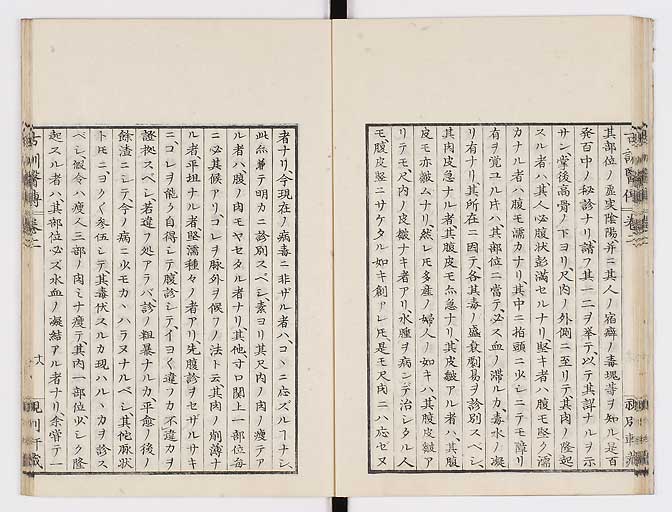 其部位ノ虚実陰陽并ニ其人ノ宿癖ノ毒塊等ヲ知ル是百
発百中ノ秘診ナリ請フ其一二ヲ挙テ以テ其詳ナルヲ示
サン掌後高骨ノ下ヨリ尺内ノ外側ニ至リテ其肉ノ隆起
スル者ハ其人必腹状彭満セルナリ堅キ者ハ腹モ堅ク濡
カナル者ハ腹モ濡カナリ其中ニ指頭ニ少シニテモ障リ
有ヲ覚ユル片ハ其部位ニ當テ必ス血ノ滞ルカ毒水ノ凝
リ有ナリ其所在ニ因テ各其毒ノ盛衰劇易ヲ診別スベシ
其肉皮急ナル者其腹皮モ亦急ナリ其皮皺アル者ハ其腹
皮モ亦皺ムナリ然レ𪜈多産ノ婦人ノ如キハ其腹皮皺ア
リテモ尺内ノ皮皺ナキ者アリ水腫ヲ病ンデ治シタル人
モ腹皮堅ニサケタル如キ創アレ𪜈是モ尺内ニハ応セヌ
者ナリ今現在ノ病毒ニ非ザル者ハコヽニ応ズルヿナシ
此亦兼テ明カニ診別スベシ素ヨリ其尺内ノ肉ノ痩テア
ル者ハ腹ノ肉モヤセタル者ナリ其他寸口関上一部位毎
ニ必其候アリコレヲ脉外ヲ候フノ法ト云其肉ノ削薄ナ
ル者平坦ナル者堅濡種々ノ者アリ先腹診ヲセザルサキ
ニコレヲ能ク自得シテ腹診シテイヨ〱違フカ不違カヲ
證拠スベシ若違フ処アラバ診ノ粗暴ナルカ平愈ノ後ノ
餘渣ニシテ今ノ病ニ少モカヽハラヌナルベシ其他脉状
ト𪜈ニヨク〱参伍シテ其毒伏スルカ現ハルヽカヲ診ス
ベシ仮令ハ痩人三部ノ肉ミナ痩テ其内一部位少シク隆
起スル者ハ其部位必ズ水血ノ凝結アル者ナリ余嘗テ一
古訓醫傳 巻二